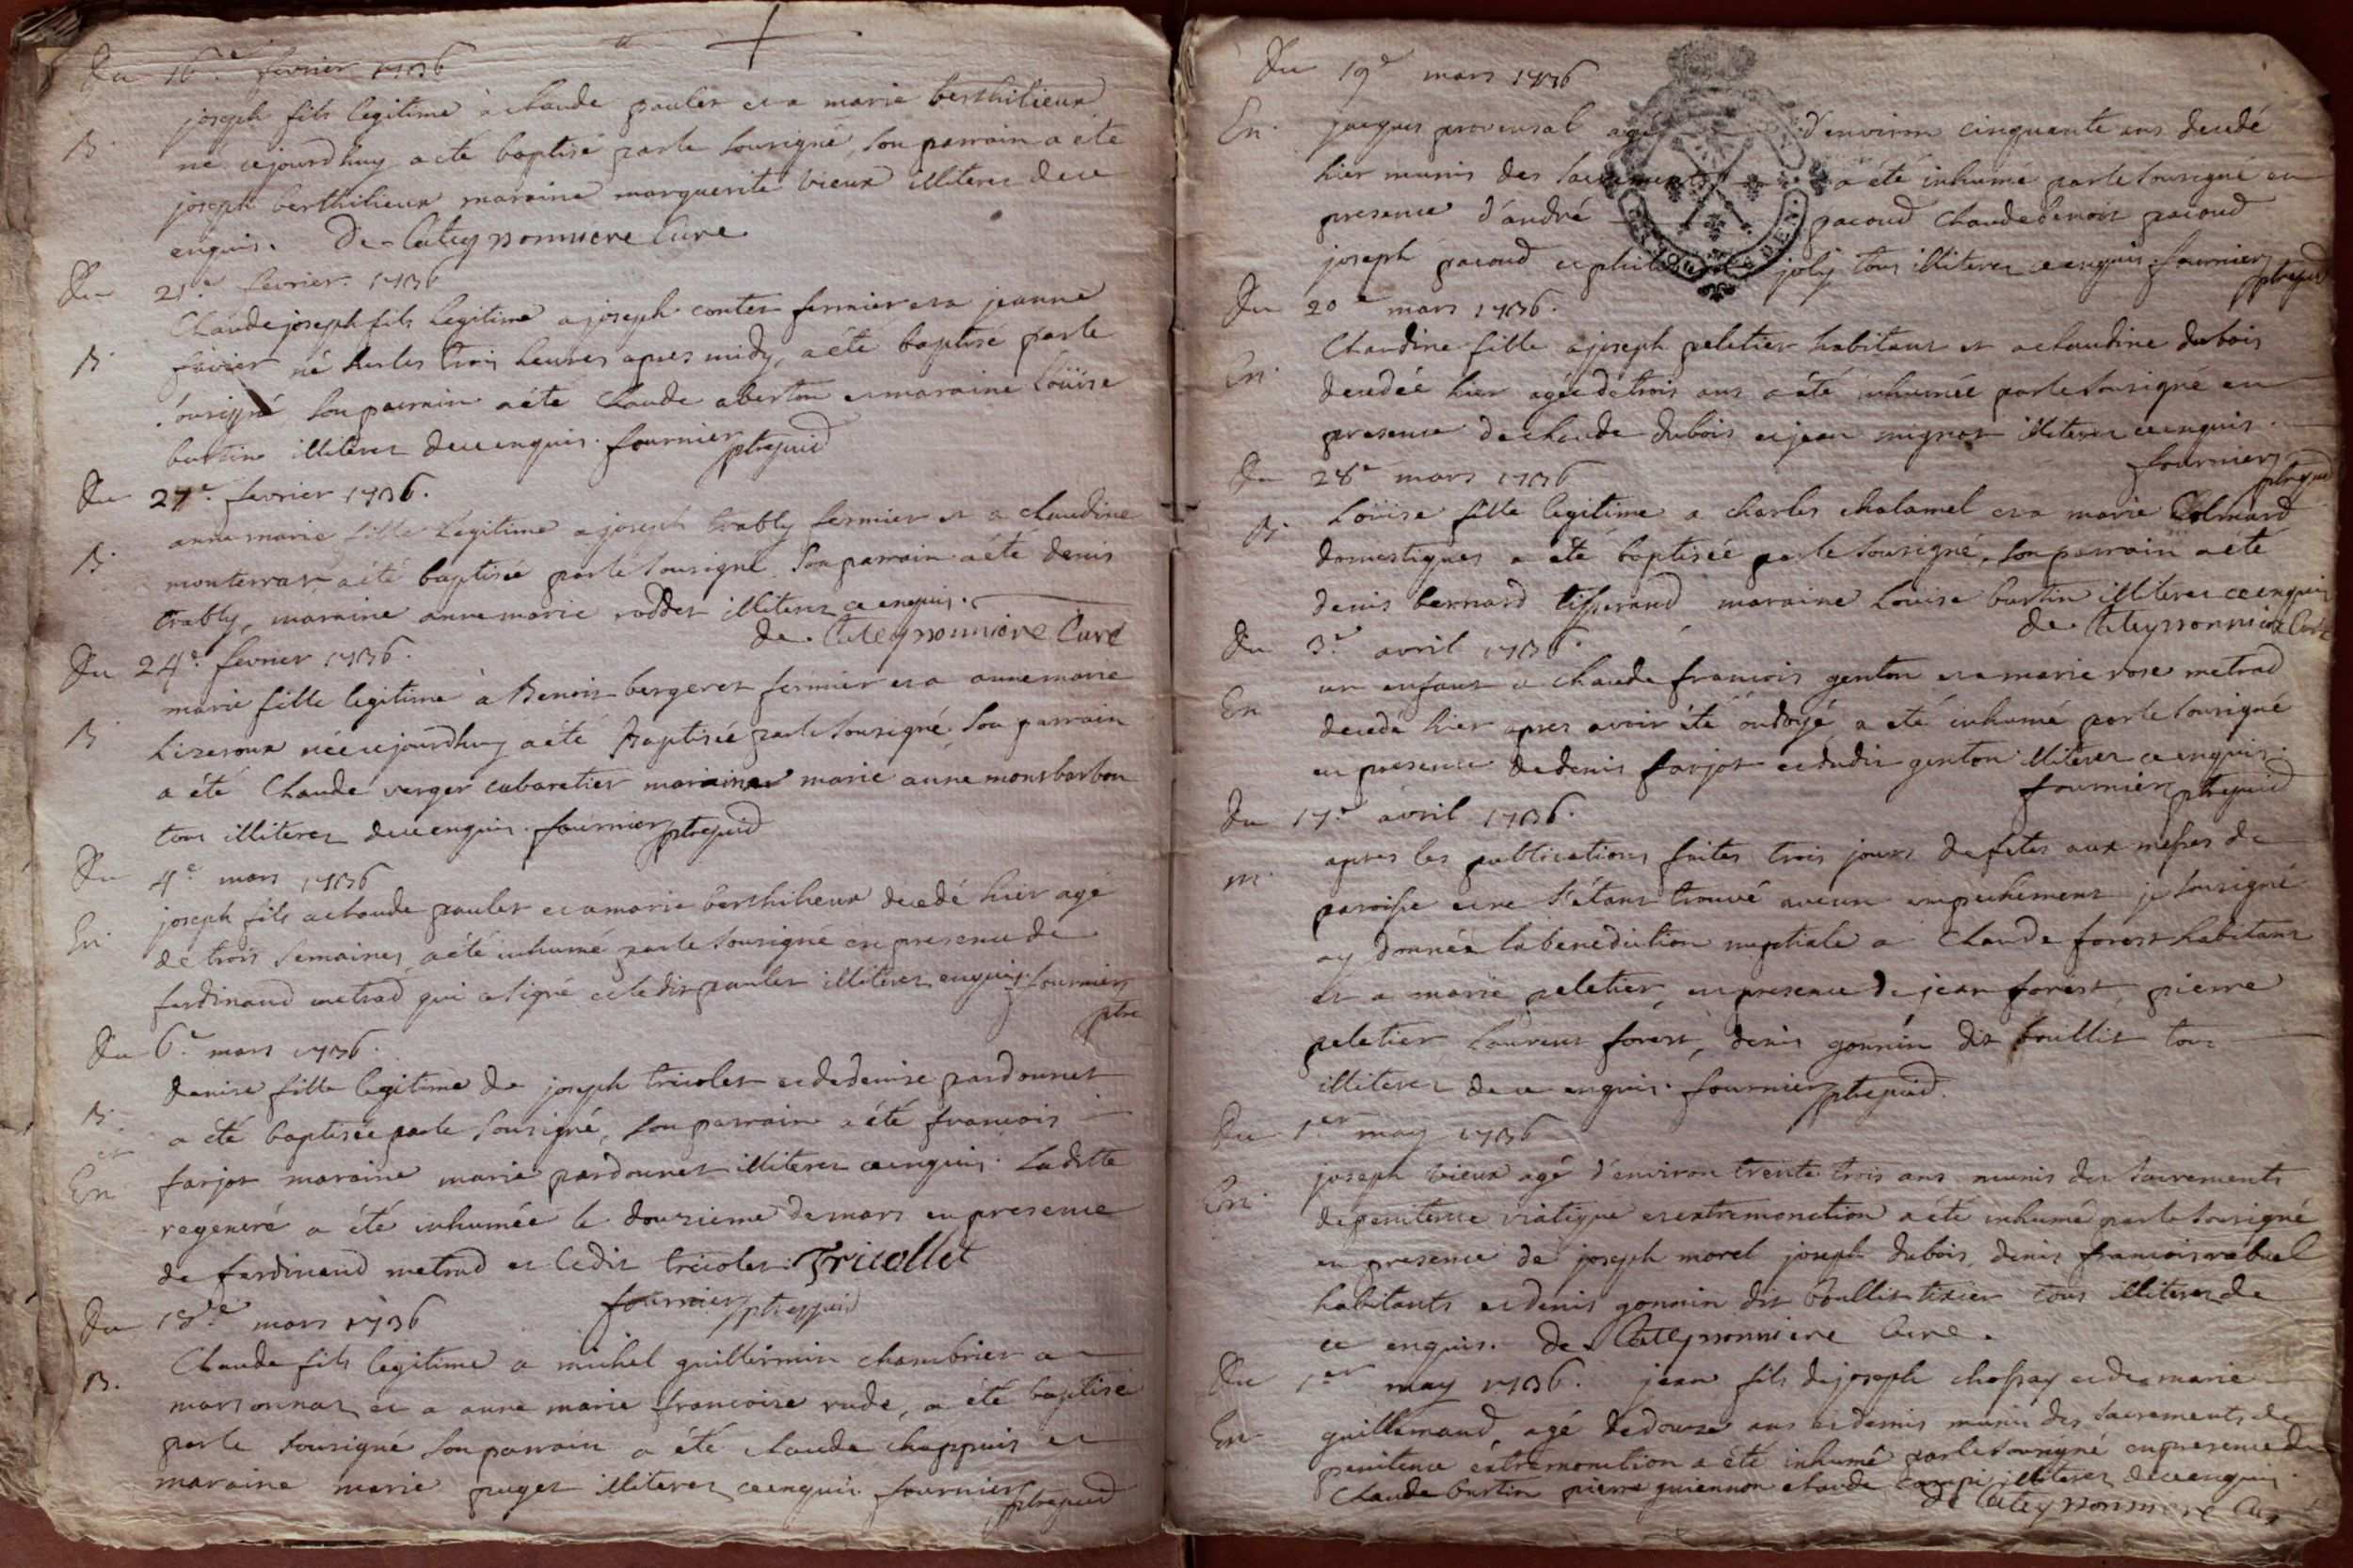 Du 16e fevrier 1736
joseph fils legitime à claude paulet et a marie berthilieux
B. né cejourdhuy a eté baptisé par le sousigné, son parrain a eté
joseph berthilieux maraine marguerite vieux illiteres de ce
enquis. De Lateyssonniere Curé
Du 21e fevrier 1736
Claude joseph fils legitime a joseph contet fermier et a jeanne
B favier né sur les trois heures apres midy, a eté baptisé par le
sousigné son parrain a eté Claude aberton et maraine Loüise
burtin illiteres de ce enquis. fournier ptre
Du 27e fevrier 1736.
anne marie fille legitime a joseph trably fermier et a claudine
B monterrat, a eté baptisée par le sousigné. Son parrain a eté denis
trably, maraine anne marie roddet illiteres ce enquis.
de Lateyssonniere Curé
Du 24e fevrier 1736.
marie fille legitime à Benoit bergeret fermier et a anne marie
B née cejourdhuy a eté Baptisée par le sousigné, son parrain
a été Claude verger cabaretier maraine marie anne monbarbon
tous illiteres de ce enquis. fournier ptre
Du 4e mars 1736
joseph fils a claude paulet et a marie berthilieux decedé hier agé
En. de trois semaines, a eté inhumé par le sousigné en presence de
ferdinand metrad qui a signé et ledit paulet illiteres enquis. fournier
ptre
Du 6e mars 1736.
denise fille legitime de joseph tricolet et de denise pardounet
B. a été baptisée par le sousigné, son parrain a été francois
et
En farjot maraine marie pardounet illiteres ce enquis. Laditte
regeneré a été inhumée le douzieme de mars en presence
de ferdinand metrad et ledit tricolet. Tricollet
fournier ptre
Du 18e mars 1736
Claude fils legitime a michel guillermin chambrier a
B. marsonnas et a anne marie francoise rude, a été baptisé
par le sousigné son parrain a été claude chappuis et
maraine marie puget illiteres ce enquis fournier
ptre
Du 19e mars 1736
En. jacques provensal agé d'environ cinquante ans decedé
hier munis des sacrements a été inhumé par le sousigné en
presence d'andré pacoud Claude benoit pacoud
joseph pacoud et joly tous illiteres ce enquis. fournier
ptre
Du 20e mars 1736.
Claudine fille a joseph peletier habitant et a claudine dubois
En. decedée hier agée de trois ans a été inhumée par le sousigné en
presence de claude dubois et jean mignot illiteres ce enquis.
fournier
Du 28e mars 1736 ptre
Loüise fille legitime a charles chalamel et a marie Colmard
B. domestiques a été baptisée par le sousigné, son parrain a été
denis bernard tisserand maraine Louise burtin illiteres ce enquis
de Lateyssonniere Curé
Du 3e avril 1736.
un enfant a claude francois genton et a marie rose metrad
En decedé hier apres avoir été ondoyé, a été inhumé par le sousigné
en presence de denis farjot et dudit genton illiteres ce enquis.
fournier ptre
Du 17e avril 1736.
apres les publications faites trois jours de fetes aux messes de
m. paroisse et ne s'étant trouvé aucun empechement je sousigné
ay donnée la benediction nuptiale a Claude forest habitant
et a marie peletier, en presence de jean forest, pierre
peletier Laurent forest, denis gonnin dit boullit tous
illiteres de ce enquis. fournier ptre
Du 1er may 1736
joseph vieux agé d'environ trente trois ans munis des sacrements
En. de penitence viatique et extremonction a été inhumé par le sousigné
en presence de joseph morel joseph dubois, denis francois rabuel
habitants et denis gonnin dit boullit tixier tous illiteres de
ce enquis. de Lateyssonniere Curé.
Du 1er may 1736. jean fils de joseph chossay et de marie
En guillemaud, agé de douze ans et demis munis des sacrements de
penitence extremonction a été inhumé par le sousigné en presence de
Claude burtin pierre guiennon claude illiteres de ce enquis
de Lateyssonniere Curé